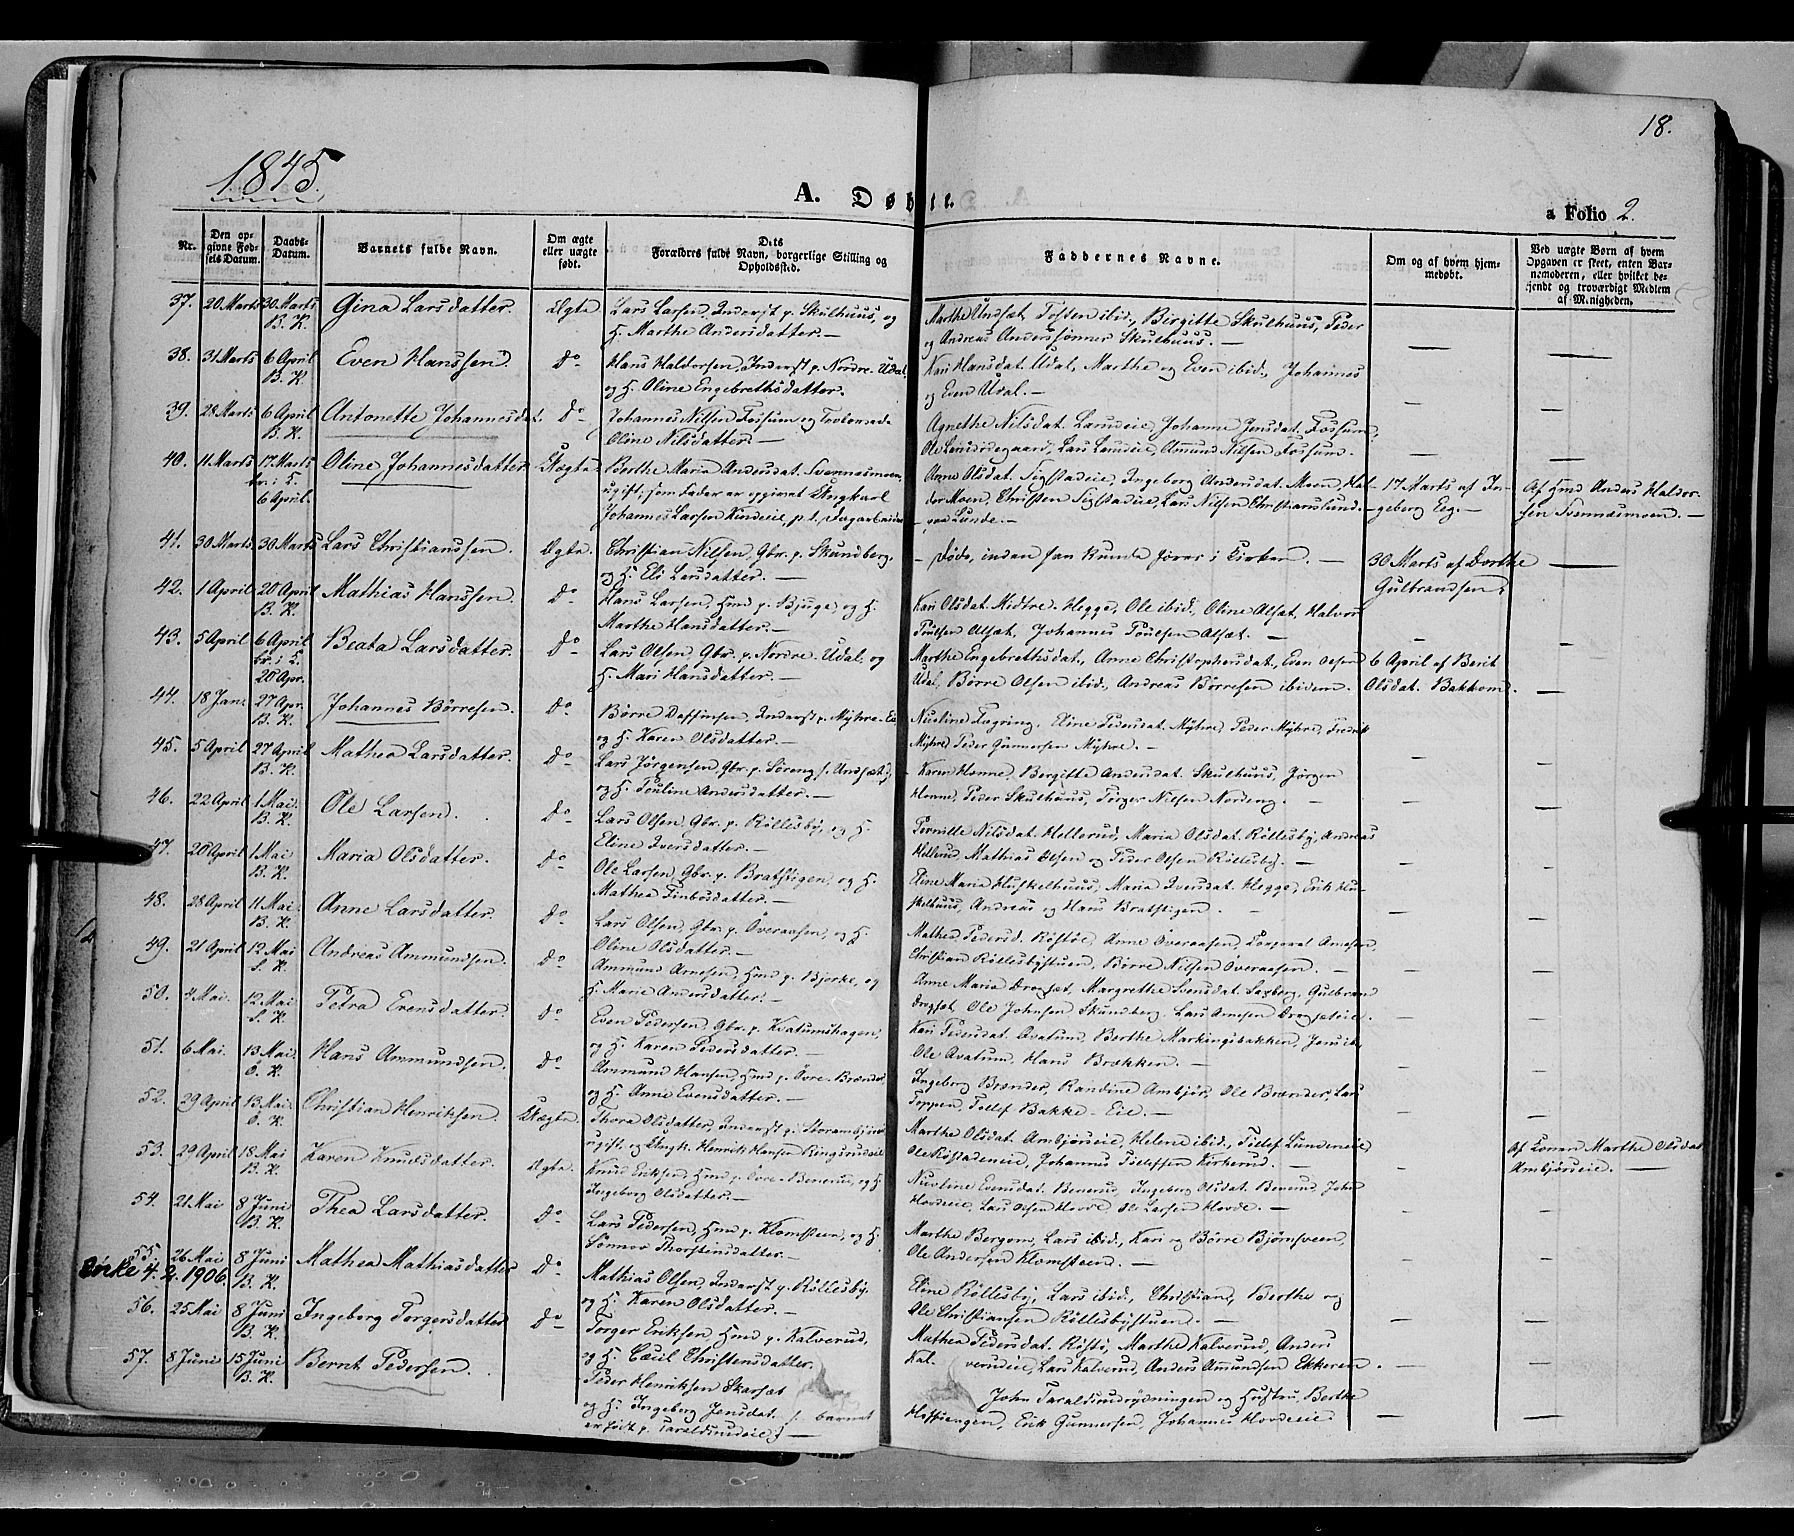 18.
1845.
A. Døbte.
a Folio 2.
Nr.
Den opgivne Fødsels Datum.
Daabs-Datum.
Barnets fulde Navn.
Om ægte eller uægte født.
Dets Forældres fulde Navn, borgerlige Stilling og Opholdssted.
Faddernes Navne.
Om og af hvem hjemmedøbt.
Ved uægte Børn af hvem Opgaven er skeet, enten Barnemoderen, eller hvilket bekjendt og troværdigt Medlem af Menigheden.
37. 20 Marts 30 Marts B. K. Gina Larsdatter. Ægte Lars Larsen, Inderst p. Skulhuus, og
H. Marthe Andersdatter. —
Marthe Undset, Tosten ibid., Birgitte Skulhuus, Peder
og Andreas Anderssønner Skulhuus. —
38. 31 Marts 6 April B. K. Even Hanssen. Do Hans Haldorsen, Inderst p. Nordre-Udal,
og H. Oline Engebrethsdatter.
Kari Hansdat. Udal, Marthe og Even ibid., Johannes
og Even Udal. —
39. 28 Marts 6 April B. K. Antonette Johannesdat. Do Johannes Nilsen Fossum og Trolovede
Oline Nilsdatter. —
Agnethe Nilsdat. Landeie, Johanne Jensdat. Fossum,
Lars Landeie, Amund Nilsen Fossum.
40. 11 Marts 17 Marts fr. i K. 6 April. Oline Johannesdatter Uægte Berthe Maria Andersdat. Svennesmoen,
ugift; som Fader er opgivet Ungkarl
Johannes Larsen Kindeie, p. t. Dagarbeider
Anne Olsdat. Sigstadeie, Ingeborg Andersdat. Moen, Hal-
dor Moen, Christen Sigstadeie, Lars Nilsen Christianslund
17 Marts af In-
geborg Eeg. —
Af Hmd Anders Haldor-
sen Svennesmoen. —
41. 30 Marts 30 Marts Lars Christianssen. Ægte. Christian Nilsen, Gbr. p. Skundberg,
og H. Eli Larsdatter. —
— Døde, inden han kunde føres i Kirken. —
30 Marts af Dorthe
Gulbrandsen.
42. 1 April 20 April B. K. Mathias Hanssen. Do Hans Larsen, Hmd p. Bjuge, og H.
Marthe Hansdatter. —
Kari Olsdat. Midtre-Hegge, Ole ibid., Oline Alset, Halvor
Poulsen Alset, Johannes Poulsen Alset. —
43. 5 April 6 April fr. i K. 20 Apr. Beata Larsdatter. Do Lars Olsen, Gbr. p. Nordre-Udal, og
H. Mari Hansdatter. —
Marthe Engebrethsdat., Anne Christophersdat., Even Olsen
Udal, Børre Olsen ibid., Andreas Børresen ibidem.
6 April af Berit
Olsdat. Bakkom.
44. 18 Jan. 27 Apr. B. K. Johannes Børresen. Do Børre Daffinsen, Inderst p. Myhre-Eie
og H. Karen Olsdatter. —
Eline Pedersdat. Myhre, Peder Myhre, Fredrik
Myhre, Peder Gunnersen Myhre. —
45. 5 April 27 April B. K. Mathea Larsdatter. Do Lars Jørgensen, Gbr. p. Søreng,
og H. Pouline Andersdatter. —
Karen Honne, Bergitte Andersdat. Skulhuus, Jørgen
Honne, Peder Skulhuus, Torger Nilsen Nordeng. —
46. 22 April 1 Mai. B. K. Ole Larsen. Do Lars Olsen, Gbr. p. Røllesby, og H.
Eline Iversdatter. —
Pernille Nilsdat. Hellerud, Maria Olsdat. Røllesby, Andreas
Hellerud, Mathias Olsen og Peder Olsen Røllesby. —
47. 20 April 1 Mai B. K. Maria Olsdatter. Do Ole Larsen, Gbr. p. Bratstigen, og H.
Mathea Finboedatter. —
Eline Maria Huskelhuus, Maria Iversdat. Hegge, Erik Hu-
skelhuus, Andreas og Hans Bratstigen.
48. 28 April 11 Mai. B. K. Anne Larsdatter. Do Lars Olsen, Gbr. p. Øveraasen, og H.
Oline Olsdatter. —
Mathea Pedersd. Røstøe, Anne Øveraasen,
Christian Røllesbystuen, Børre Nilsen Øveraasen. —
49. 21 April 12 Mai S. K. Andreas Ammundsen. Do Ammund Arnesen, Hmd p. Bjerke, og
H. Marie Andersdatter. —
Anne Maria Dregset, Margrethe Svensdat. Saxberg, Gulbran
Dregset, Ole Johnsen Skundberg, Lars Arnesen Dregseteie. —
50. 4 Mai. 12 Mai S. K. Petra Evensdatter. Do Even Pedersen, Gbr. p. Kvatumshagen,
og H. Karen Pedersdatter. —
Kari Pedersdat. Qvatum, Berthe Markingsbakken, Jens ib.,
Ole Qvatum, Hans Brækken. —
51. 6 Mai. 13 Mai. Ø. K. Hans Ammundsen. Do Ammund Hansen, Hmd p. Øvre-Brænder
og H. Anne Evensdatter. —
Ingeborg Brænder, Randine Ambjør, Ole Brænder, Lars
Toppen, Tollef Bakke-Eie. —
52. 29 April 13 Mai. Ø. K. Christian Henriksen. Uægte. Thora Olsdatter, Inderst p. Storambjør
ugift, og Ungk. Henrik Hansen Ringsrudeie
Marthe Olsdat. Ambjørseie, Helene ibid., Tollef Lundeneie,
Ole Røstadeneie, Johannes Tollefsen Kirkerud. —
Af Konen Marthe Olsdat
Ambjørseie. —
53. 29 April 18 Mai B. K. Karen Knudsdatter. Ægte. Knud Eriksen, Hmd p. Øvre-Benerud, og H.
Ingeborg Olsdatter. —
Evensdat. Benerud, Ingeborg Olsdat. Benerud, John
Hovdeeie, Lars Olsen Hovde, Ole Larsen Hovde. —
54. 21 Mai 8 Juni B. K. Thea Larsdatter. Do Lars Pedersen, Hmd p. Klomsteen, og H.
Sønnov Thorstensdatter. —
Marthe Bergom, Lars ibid., Kari og Børre Bjørnsveen,
Ole Andersen Klomsteen. —
55. 26 Mai 8 Juni B. K. Mathea Mathiasdatter Do Mathias Olsen, Inderst p. Røllesby,
og H. Karen Olsdatter. —
Eline Røllesby, Lars ibid., Christian, Berthe og
Ole Christiansen Røllesbystuen. —
4. 2. 1906
56. 25 Mai 8 Juni B. K. Ingeborg Torgersdatter Do Torger Eriksen, Hmd p. Kalverud,
og H. Cæcil Christensdatter.
Mathea Pedersdat. Røstø, Marthe Kalverud, Anders
Kalverudeie, Lars Kalverud, Anders Ammundsen Ekkeren.
57. 8 Juni 15 Juni B. K. Bernt Pedersen. Peder Henriksen Skarset
og H. Ingeborg Jensdat. (: barnet
er født p. Taraldsrudeie :) —
John Taraldsrudrydningen og Hustru, Berthe
Hoffsengen, Erik Gunnersen, Johannes Hovdeeie